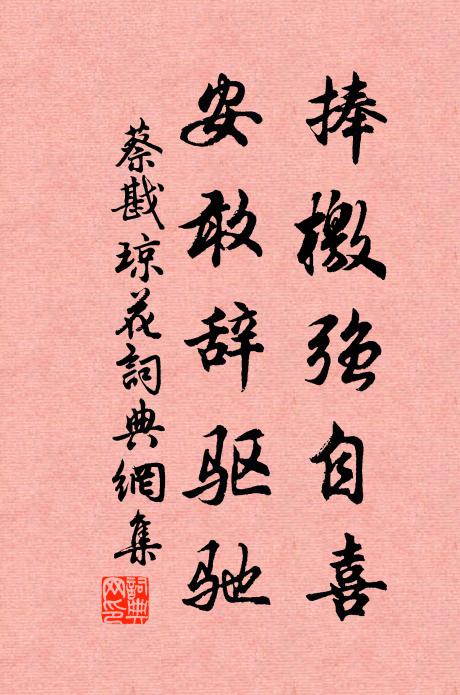 捧檄强自喜
安敢辞驱驰
蔡戡琼花詞典網集
詞典
网印